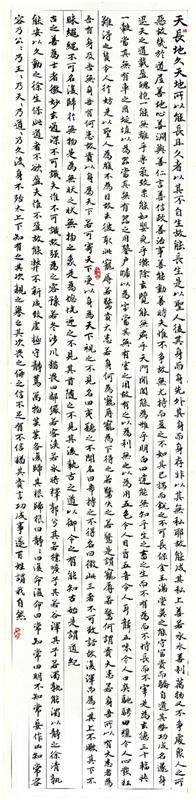 天長地久天地所以能長且久者以其不自生故能長生是以聖人後其身而身先外其身而身存非以其無私耶故能成其私上善若水水善利萬物又不爭處衆人之所
惡故幾於道居善地心善淵與善仁言善信政善治事善能動善時夫唯不爭故無尤持而盈之不如其已揣而銳之不可長保金玉滿堂莫之能守富貴而驕自遺其咎功成名遂身
退天之道載營魄抱一能無離乎專氣致柔能如嬰兒乎滌除玄覽能無疵乎天門開闔能為雌乎明白四達能無知乎生之畜之生而不有為而不恃長而不宰是為玄德三十輻共
一轂當其無有車之用埏埴以為器當其無有器之用鑿戶牖以為室當其無有室之用故有之以為利無之以為用五色令人目盲五音令人耳聾五味令人口爽馳騁田獵令人心發狂
難得之貨令人行妨是以聖人為腹不為目故去彼取此寵辱若驚貴大患若身何謂寵辱若驚寵為下得之若驚失之若驚是謂寵辱若驚何謂貴大患若身吾所以有大患者為
吾有身及吾無身吾有何患故貴以身為天下若可寄天下愛以身為天下視之不見名曰夷聽之不聞名曰希搏之不得名曰微此三者不可致詰故混而為一其上不皦其下不
昧繩繩不可名復歸於無物是為無狀之狀無物之象是為惚恍迎之不見其首隨之不見其後執古之道以御今之有能知古始是謂道紀
古之善為士者微妙玄通深不可識夫唯不可識故強為之容豫若冬涉川猶若畏四鄰儼若客渙若冰將釋敦其若樸曠其若谷渾其若濁孰能濁以靜之徐清孰
能安以久動之徐生保此道者不欲盈夫唯不盈故能弊不新成致虛極守靜篤萬物芸芸各復歸其根歸根曰靜靜曰復命復命曰常知常曰明不知常妄作凶知常容
容乃公公乃王王乃天天乃道道乃久沒身不殆太上下知有之其次親之譽之其次畏之侮之信不足有不信猶其貴言功成事遂百姓謂我自然